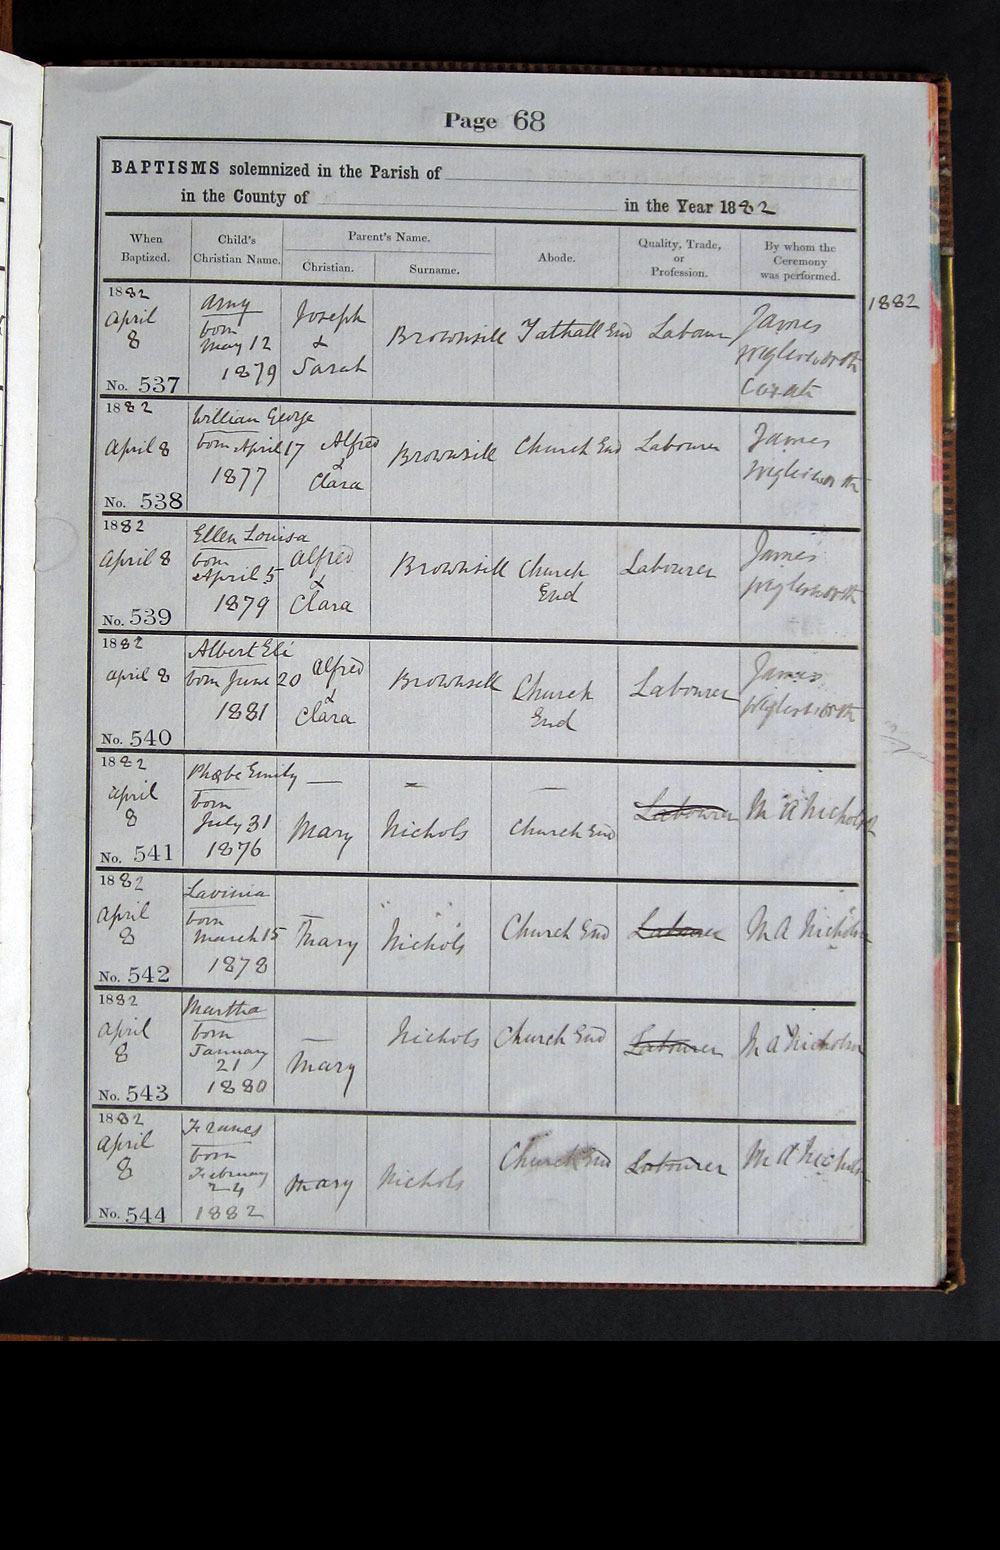 Page 68
BAPTISMS solemnized in the Parish of
in the County of in the Year 1882
When Baptized.
Child's Christian Name.
Parent's Name.
Christian.
Surname.
Abode.
Quality, Trade, or Profession.
By whom the Ceremony was performed.
1882
1882
April
8
No. 537
Amy
born
May 12
1879
Joseph
&
Sarah
Brownsill
Tathall End
Labourer
James
Wiglesworth
Curate
1882
April 8
No. 538
William George
born April 17
1877
Alfred
&
Clara
Brownsill
Church End
Labourer
James
Wiglesworth
1882
April 8
No. 539
Ellen Louisa
born
April 5
1879
Alfred
&
Clara
Brownsill
Church
End
Labourer
James
Wiglesworth
1882
April 8
No. 540
Albert Eli
born June 20
1881
Alfred
&
Clara
Brownsell
Church
End
Labourer
James
Wiglesworth
1882
April
8
No. 541
Phœbe Emily
born
July 31
1876
—
Mary
Nichols
Church End
Labourer
M A Nicholson
1882
April
8
No. 542
Lavinia
born
March 15
1878
—
Mary
Nichols
Church End
Labourer
M A Nicholson
1882
April
8
No. 543
Martha
born
January
21
1880
—
Mary
Nichols
Church End
Labourer
M A Nicholson
1882
April
8
No. 544
Frances
born
February
24
1882
Mary
Nichols
Church End
Labourer
M A Nicholson